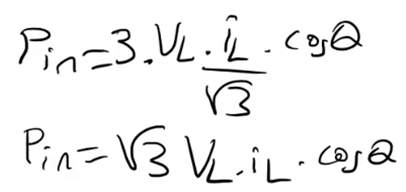 Pin=3.VL.iL/√3.cosθ
Pin=√3 VL.iL.cosθ